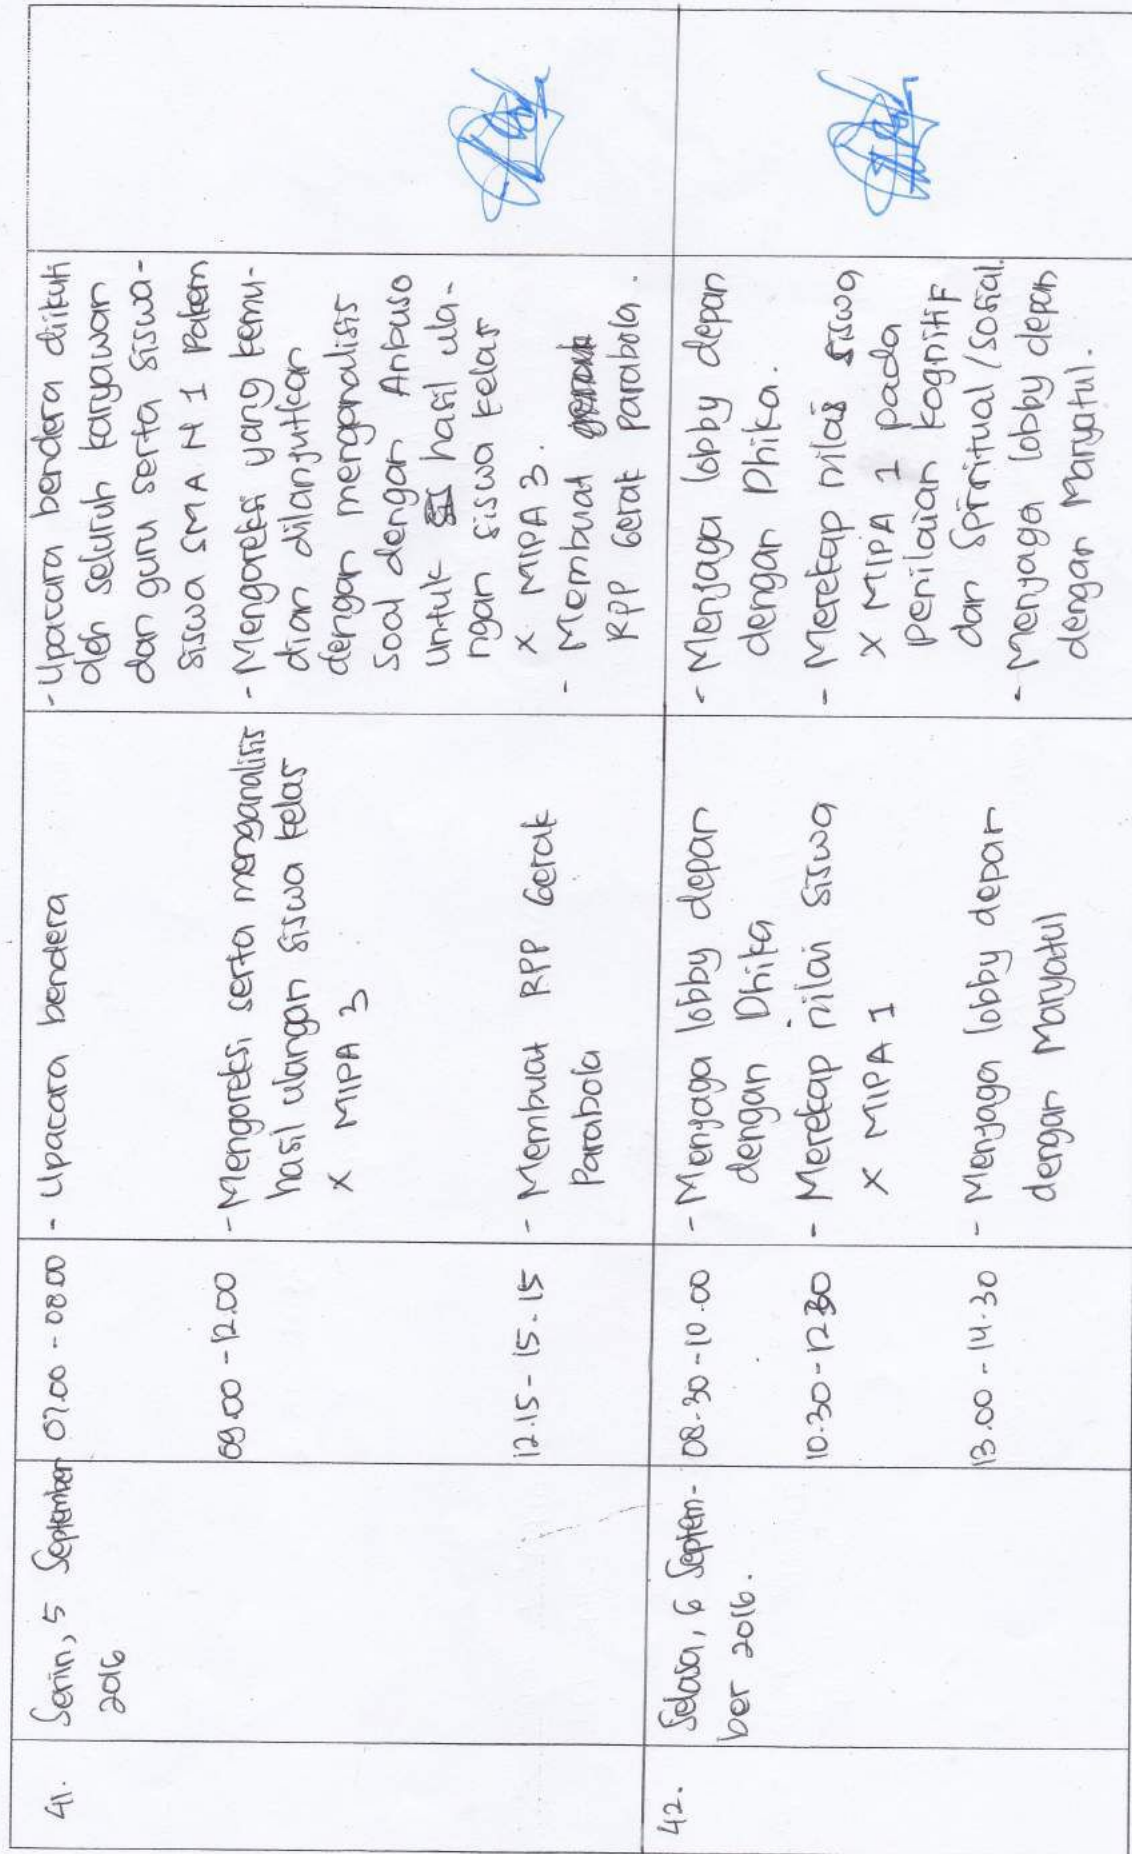 41.
Senin, 5 September
2016
07.00 - 08.00
- Upacara bendera
- Upacara bendera diikuti
oleh seluruh karyawan
dan guru serta siswa-
siswa SMA N 1 Pakem
09.00 - 12.00
- Mengoreksi serta menganalisis
hasil ulangan siswa kelas
X MIPA 3
- Mengoreksi yang kemu-
dian dilanjutkan
dengan menganalisis
soal dengan Anbuso
untuk hasil ula-
ngan siswa kelas
X MIPA 3.
12.15 - 15.15
- Membuat RPP Gerak
Parabola
- Membuat
RPP Gerak Parabola.
42.
Selasa, 6 Septem-
ber 2016.
08.30 - 10.00
- Menjaga lobby depan
dengan Dhika
- Menjaga lobby depan
dengan Dhika.
10.30 - 12.30
- Merekap nilai siswa
X MIPA 1
- Merekap nilai siswa
X MIPA 1 pada
penilaian kognitif
dan Spiritual/sosial.
13.00 - 14.30
- Menjaga lobby depan
dengan Maryatul
- Menjaga lobby depan
dengan Maryatul.